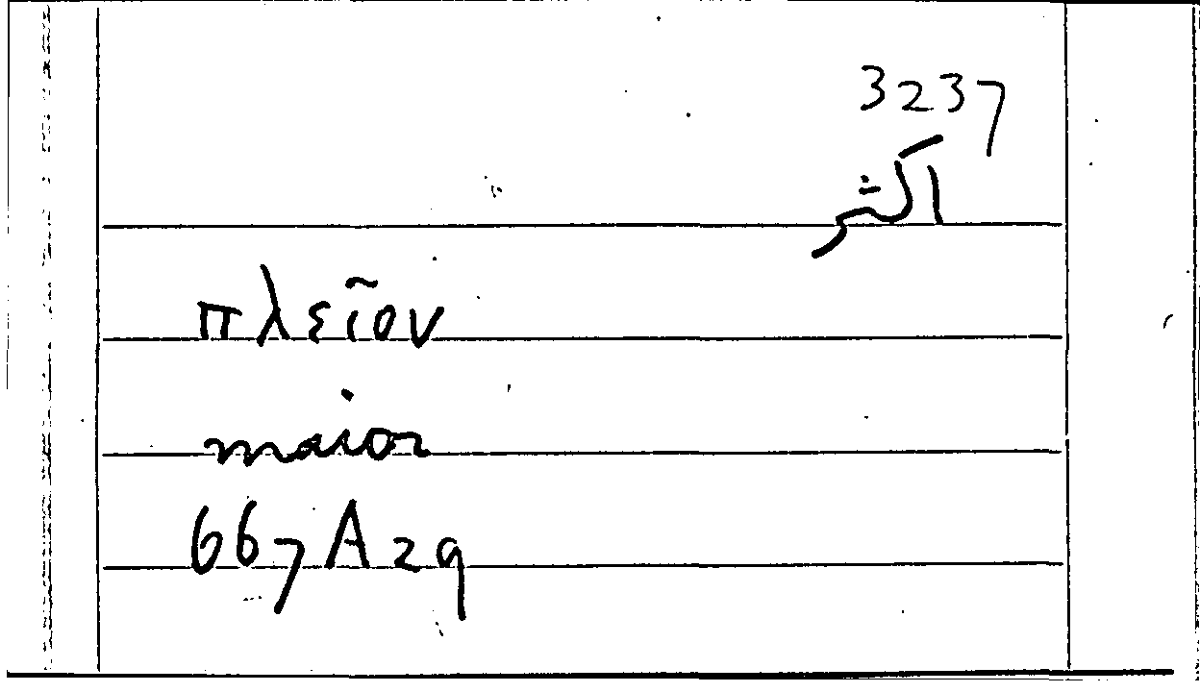 3237
اكثر
πλεῖον
maior
667A29